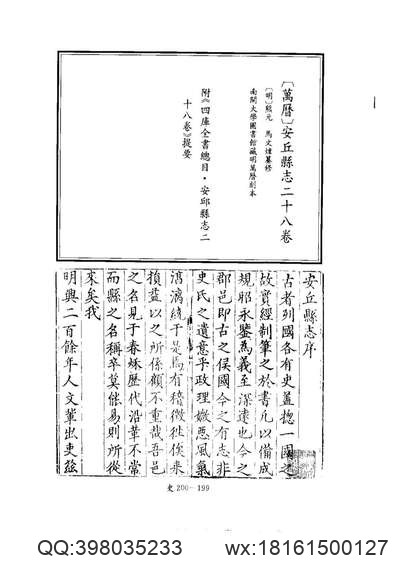 〔萬曆〕安丘縣志二十八卷
〔明〕熊元 馬文煒纂修
南開大學圖書館藏明萬曆刻本
附《四庫全書總目·安邱縣志二
十八卷》提要
安丘縣志序
古者列國各有史蓋揔一國之
故實經制筆之於書凡以備成
規昭永鑒為義至深遠也今之
郡邑即古之侯國今之有志非
史氏之遺意乎政理媺惡風氣
漓漓繞于是焉有稽微往俟来
損益以之所係顧不重哉吾邑
之名見于春秋歷代沿革不常
而縣之名稱卒莫能易則所從
來矣我
明興二百餘年人文輩出吏茲
史 200—199
QQ:398035233 wx:18161500127